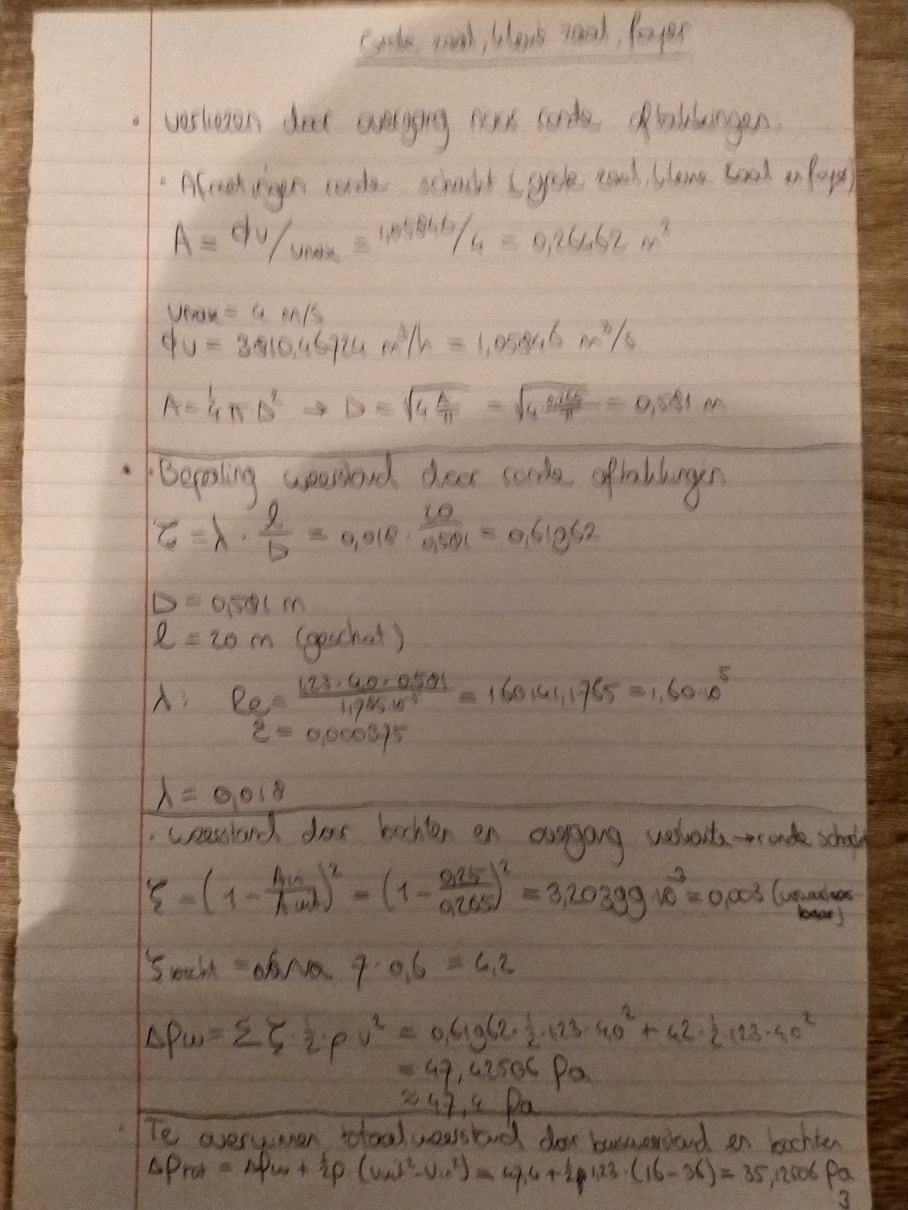 zaal, kleine zaal, foyer
verliezen door overgang naar ronde aftakkingen.
· Afmetingen ronde schacht (grote zaal, kleine zaal en foyer)
A = ϕv/vmax = 1,05846/4 = 0,26462 m²
vmax = 4 m/s
ϕv = 3810,46724 m³/h = 1,05846 m³/s
A = ¼ π · D² → D = √(4 A/π) = √(4 0,265/π) = 0,581 m
· Bepaling weerstand door ronde aftakkingen
ζ = λ · l/D = 0,018 · 20/0,581 = 0,61962
D = 0,581 m
l = 20 m (geschat)
λ: Re = 1,23 · 4,0 · 0,581 / 1,785·10⁻⁵ = 160141,1765 = 1,60·10⁵
ε = 0,000375
λ = 0,018
· weerstand door bochten en overgang → ronde schacht
ζ = (1 - Ain/Auit)² = (1 - 0,25/0,265)² = 3,20399·10⁻³ = 0,003
ζbocht = 7 · 0,6 = 4,2
Δpw = Σ ζ · ½ · ρ v² = 0,61962 · ½ · 1,23 · 4,0² + 4,2 · ½ · 1,23 · 4,0²
= 47,42506 Pa
≈ 47,4 Pa
Te overwinnen totaalweerstand door en bochten
Δptot = Δpw + ½ρ (vuit² - vin²) = 47,4 + ½ 1,23 · (16 - 36) = 35,12506 Pa
3